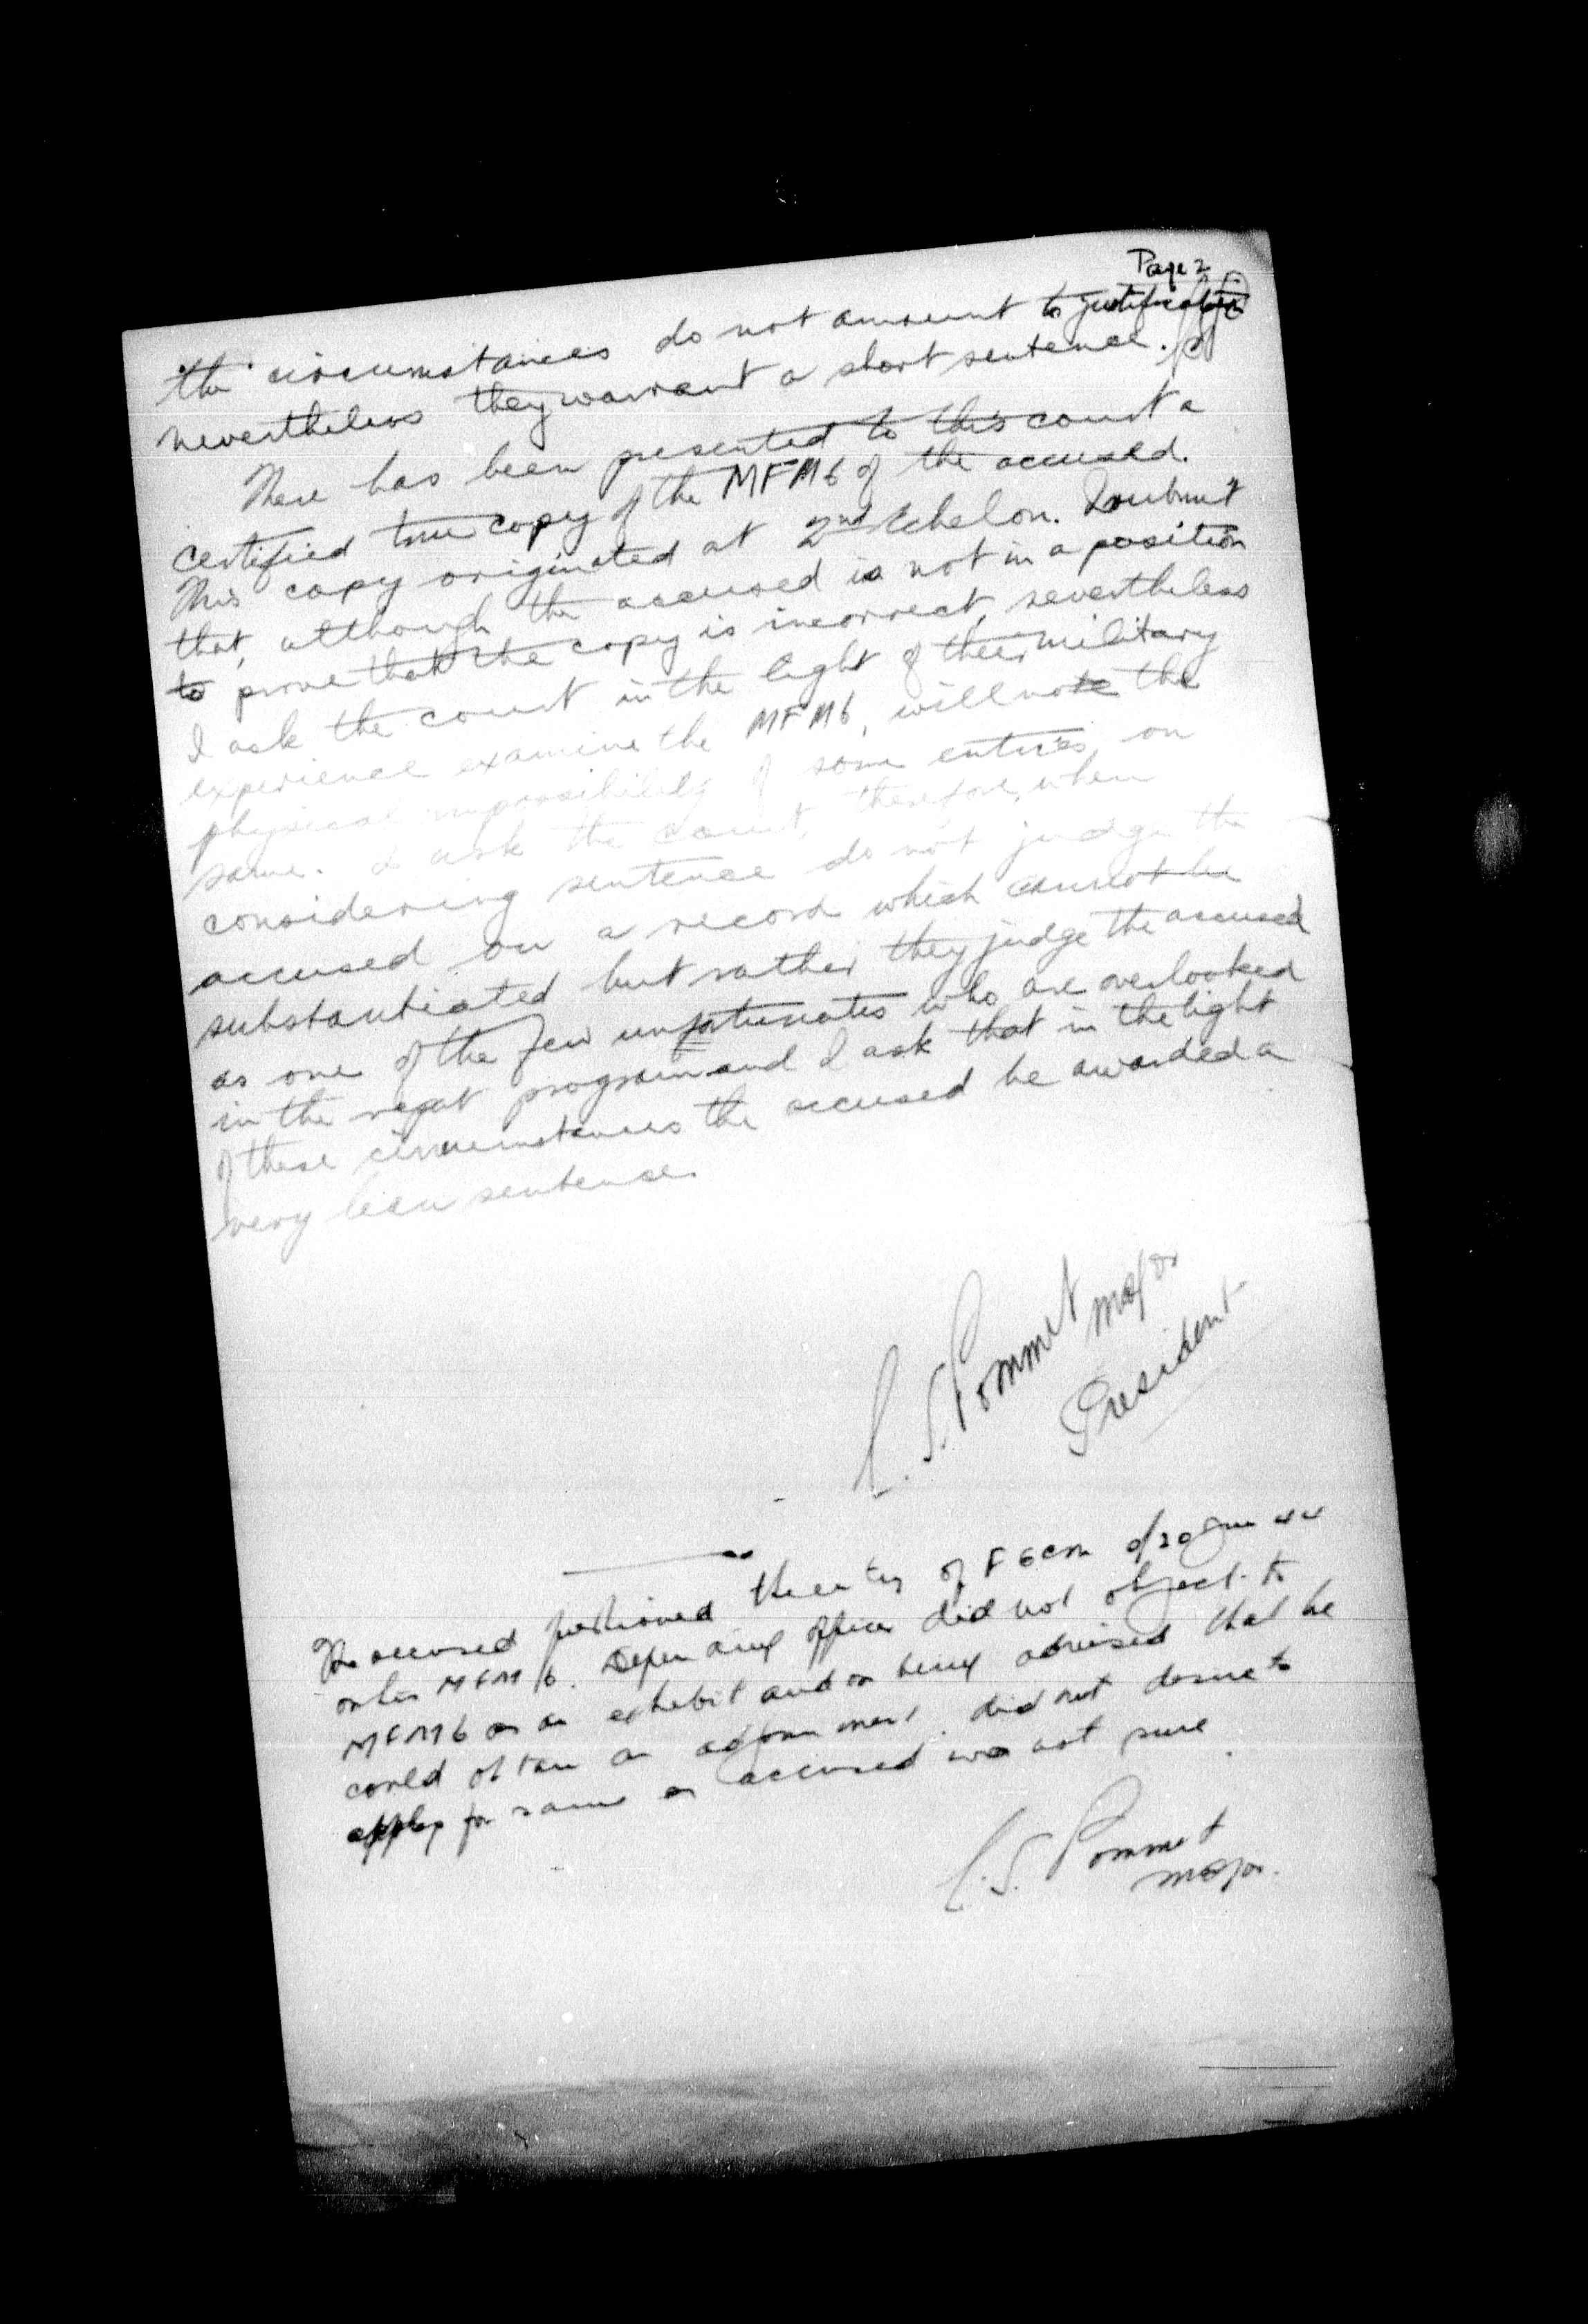 Page 2
the circumstances do not amount to justification
nevertheless they warrant a short sentence.
There has been presented to this court a
certified true copy of the MFM6 of the accused.
This copy originated at 2nd Echelon. I submit
that, although the accused is not in a position
to prove that the copy is incorrect, nevertheless
I ask the court in the light of their military
experience examine the MFM6, will note the
physical impossibility of some entries, on
same. I ask the court, therefore, when
considering sentence do not judge the
accused on a record which cannot be
substantiated but rather they judge the accused
as one of the few unfortunates who are overlooked
in the repat program and I ask that in the light
of these circumstances the accused be awarded a
very lean sentence.
C. S. Pommet Major
President
The accused questioned the entry of FGCM of 20 Jun
on his MFM 6. Defending officer did not object to
MFM6 as an exhibit and on being advised that he
could obtain an adjournment. did not desire to
apply for same as accused was not sure.
C. S. Pommet
Major.